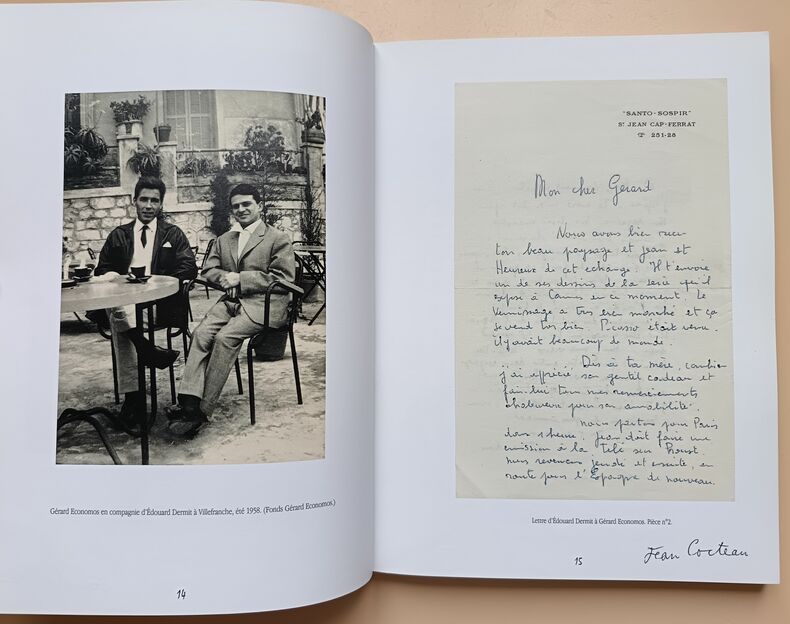 Gérard Economos en compagnie d'Édouard Dermit à Villefranche, été 1958. (Fonds Gérard Economos.)
14
"SANTO-SOSPIR"
St JEAN CAP-FERRAT
251-28
Mon cher Gérard
Nous avons bien recu
ton beau paysage et Jean et
Heureux de cet echange. Il t'envoie
un de ses dessins de la serie qu'il
expose à Cannes en ce moment. Le
Vernissage a tres bien marché et ça
se vend tres bien Picasso était venu.
il y avait beaucoup de monde.
Dis à ta mère, combien
j'ai apprécié son gentil cadeau et
fais-lui tous mes remerciements
chaleureux pour son amabilité.
nous partons pour Paris
dans 1 heure. Jean doit faire une
emission à la télé sur Proust.
nous revenons jeudi et ensuite, en
route pour l'Espagne de nouveau.
Lettre d'Édouard Dermit à Gérard Economos. Pièce n°2.
15
Jean Cocteau